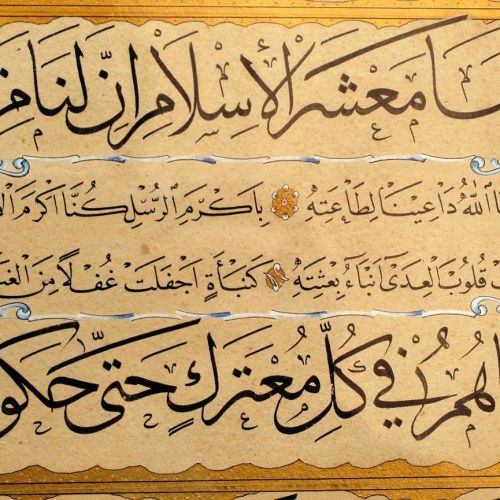 نَا مَعْشَرَ الْأِسْلَامِ اِنَّ لَنَا مِ
ا اللّٰهُ دَاعِينَا لِطَاعَتِهِ بِاَكْرَمِ الرُّسْلِ كُنَّا اَكْرَمَ الْاُ
قُلُوبَ الْعِدَى اَنْبَاءُ بِعْثَتِهِ كَنَبْأَةٍ اَجْفَلَتْ غُفْلًا مِنَ الْغَ
هُمُ فِي كُلِّ مُعْتَرَكٍ حَتَّى حَكَو